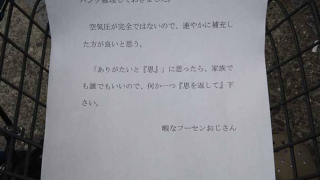 パンク修理しておきました。
空気圧が完全ではないので、速やかに補充
した方が良いと思う。
「ありがたいと『恩』」に思ったら、家族で
も誰でもいいので、何か一つ『恩を返して』下
さい。
暇なフーセンおじさん